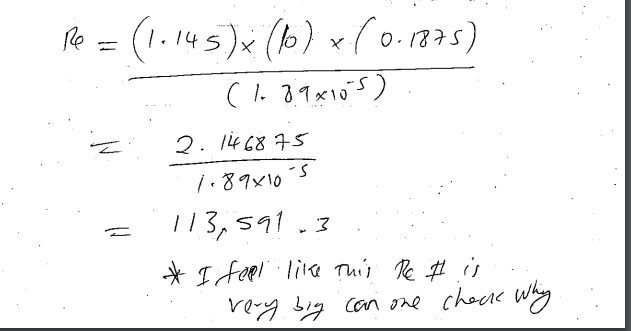 Re = (1.145) x (10) x (0.1875)
(1.89x10^-5)
= 2.146875
1.89x10^-5
= 113,591.3
* I feel like this Re # is
very big can one check why